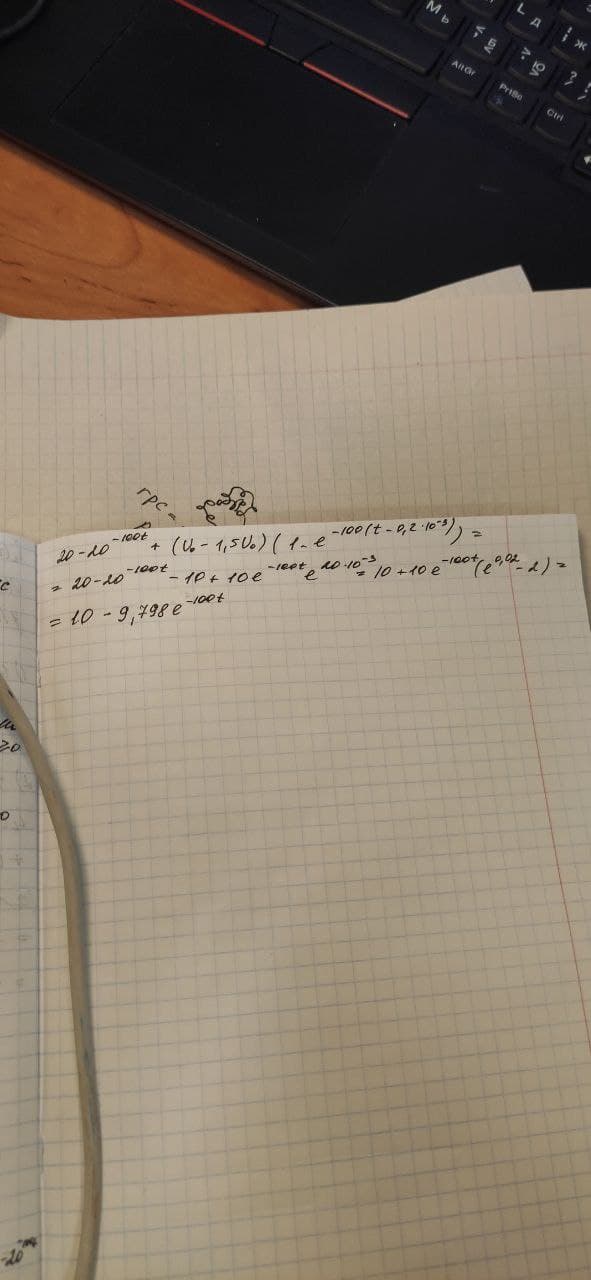 М Ь
< Б
L Д
; Ж
AltGr
> Ю
? /
PrtSc
Ctrl
20-20^-100t + (U₀ - 1,5U₀) ( 1 - e^-100(t - 0,2·10^-3)) =
= 20-20^-100t - 10 + 10e^-100t e^20·10^-3 = 10 + 10e^-100t (e^0,02 - 2) =
= 10 - 9,798e^-100t